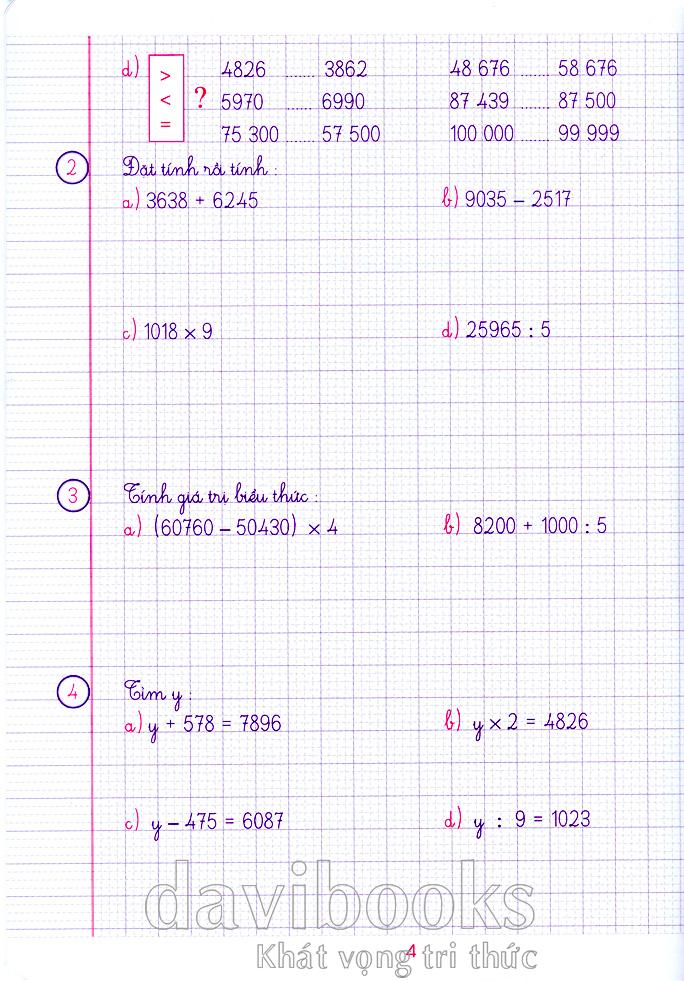 d) > 4826 ....... 3862 48 676 ....... 58 676
< ? 5970 ....... 6990 87 439 ....... 87 500
= 75 300 ....... 57 500 100 000 ....... 99 999
2 Đặt tính rồi tính :
a) 3638 + 6245 b) 9035 – 2517
c) 1018 × 9 d) 25965 : 5
3 Tính giá trị biểu thức :
a) (60760 – 50430) × 4 b) 8200 + 1000 : 5
4 Tìm y :
a) y + 578 = 7896 b) y × 2 = 4826
c) y – 475 = 6087 d) y : 9 = 1023
davibooks
Khát vọng tri thức
4